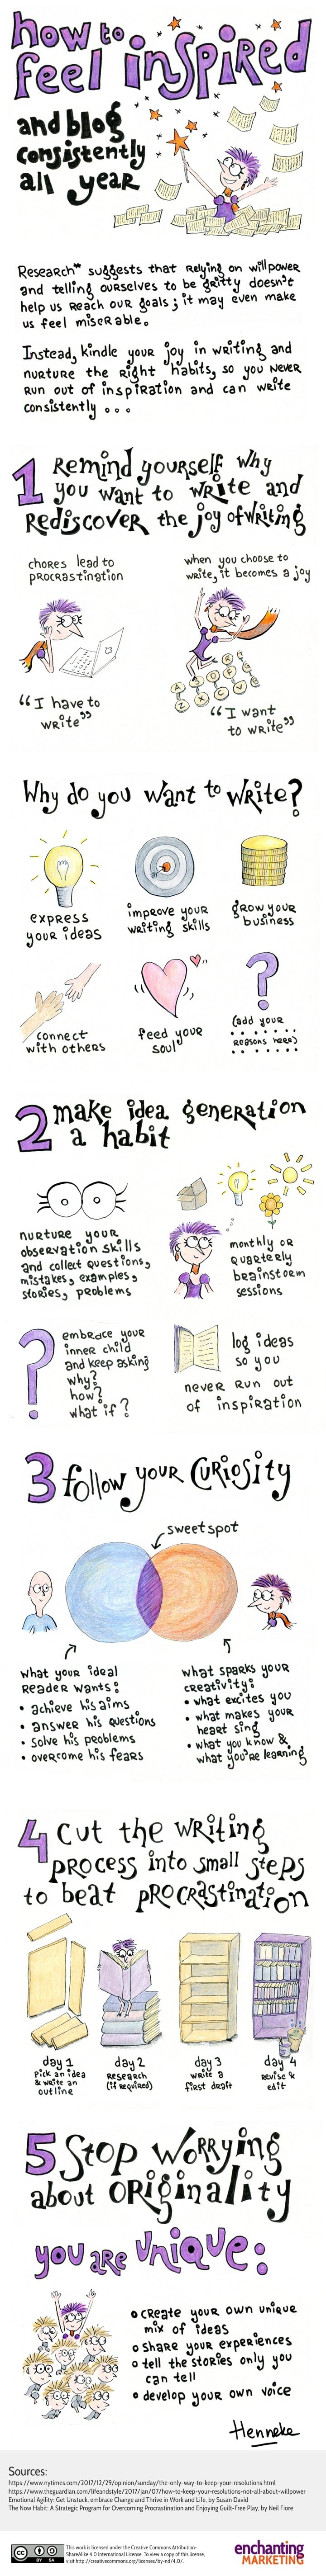 how to
feel inspired
and blog
consistently
all year
Research* suggests that relying on willpower
and telling ourselves to be gritty doesn't
help us reach our goals; it may even make
us feel miserable.
Instead, kindle your joy in writing and
nurture the right habits, so you never
run out of inspiration and can write
consistently ...
1 Remind yourself why
you want to write and
rediscover the joy of writing
chores lead to
procrastination
when you choose to
write, it becomes a joy
"I have to
write"
"I want
to write"
Why do you want to write?
express
your ideas
improve your
writing skills
grow your
business
connect
with others
feed your
soul
(add your
reasons here)
2 make idea generation
a habit
nurture your
observation skills
and collect questions,
mistakes, examples,
stories, problems
monthly or
quarterly
brainstorm
sessions
embrace your
inner child
and keep asking
why?
how?
what if?
log ideas
so you
never run out
of inspiration
3 follow your curiosity
sweet spot
what your ideal
reader wants:
• achieve his aims
• answer his questions
• solve his problems
• overcome his fears
what sparks your
creativity:
• what excites you
• what makes your
heart sing
• what you know &
what you're learning
4 Cut the writing
process into small steps
to beat procrastination
day 1
Pick an idea
& write an
outline
day 2
Research
(if required)
day 3
write a
first draft
day 4
Revise &
edit
5 Stop worrying
about originality
you are unique:
• create your own unique
mix of ideas
• share your experiences
• tell the stories only you
can tell
• develop your own voice
Henneke
Sources:
https://www.nytimes.com/2017/12/29/opinion/sunday/the-only-way-to-keep-your-resolutions.html
https://www.theguardian.com/lifeandstyle/2017/jan/07/how-to-keep-your-resolutions-not-all-about-willpower
Emotional Agility: Get Unstuck, embrace Change and Thrive in Work and Life, by Susan David
The Now Habit: A Strategic Program for Overcoming Procrastination and Enjoying Guilt-Free Play, by Neil Fiore
This work is licensed under the Creative Commons Attribution-
ShareAlike 4.0 International License. To view a copy of this license,
visit http://creativecommons.org/licenses/by-nd/4.0/.
enchanting
MARKETING